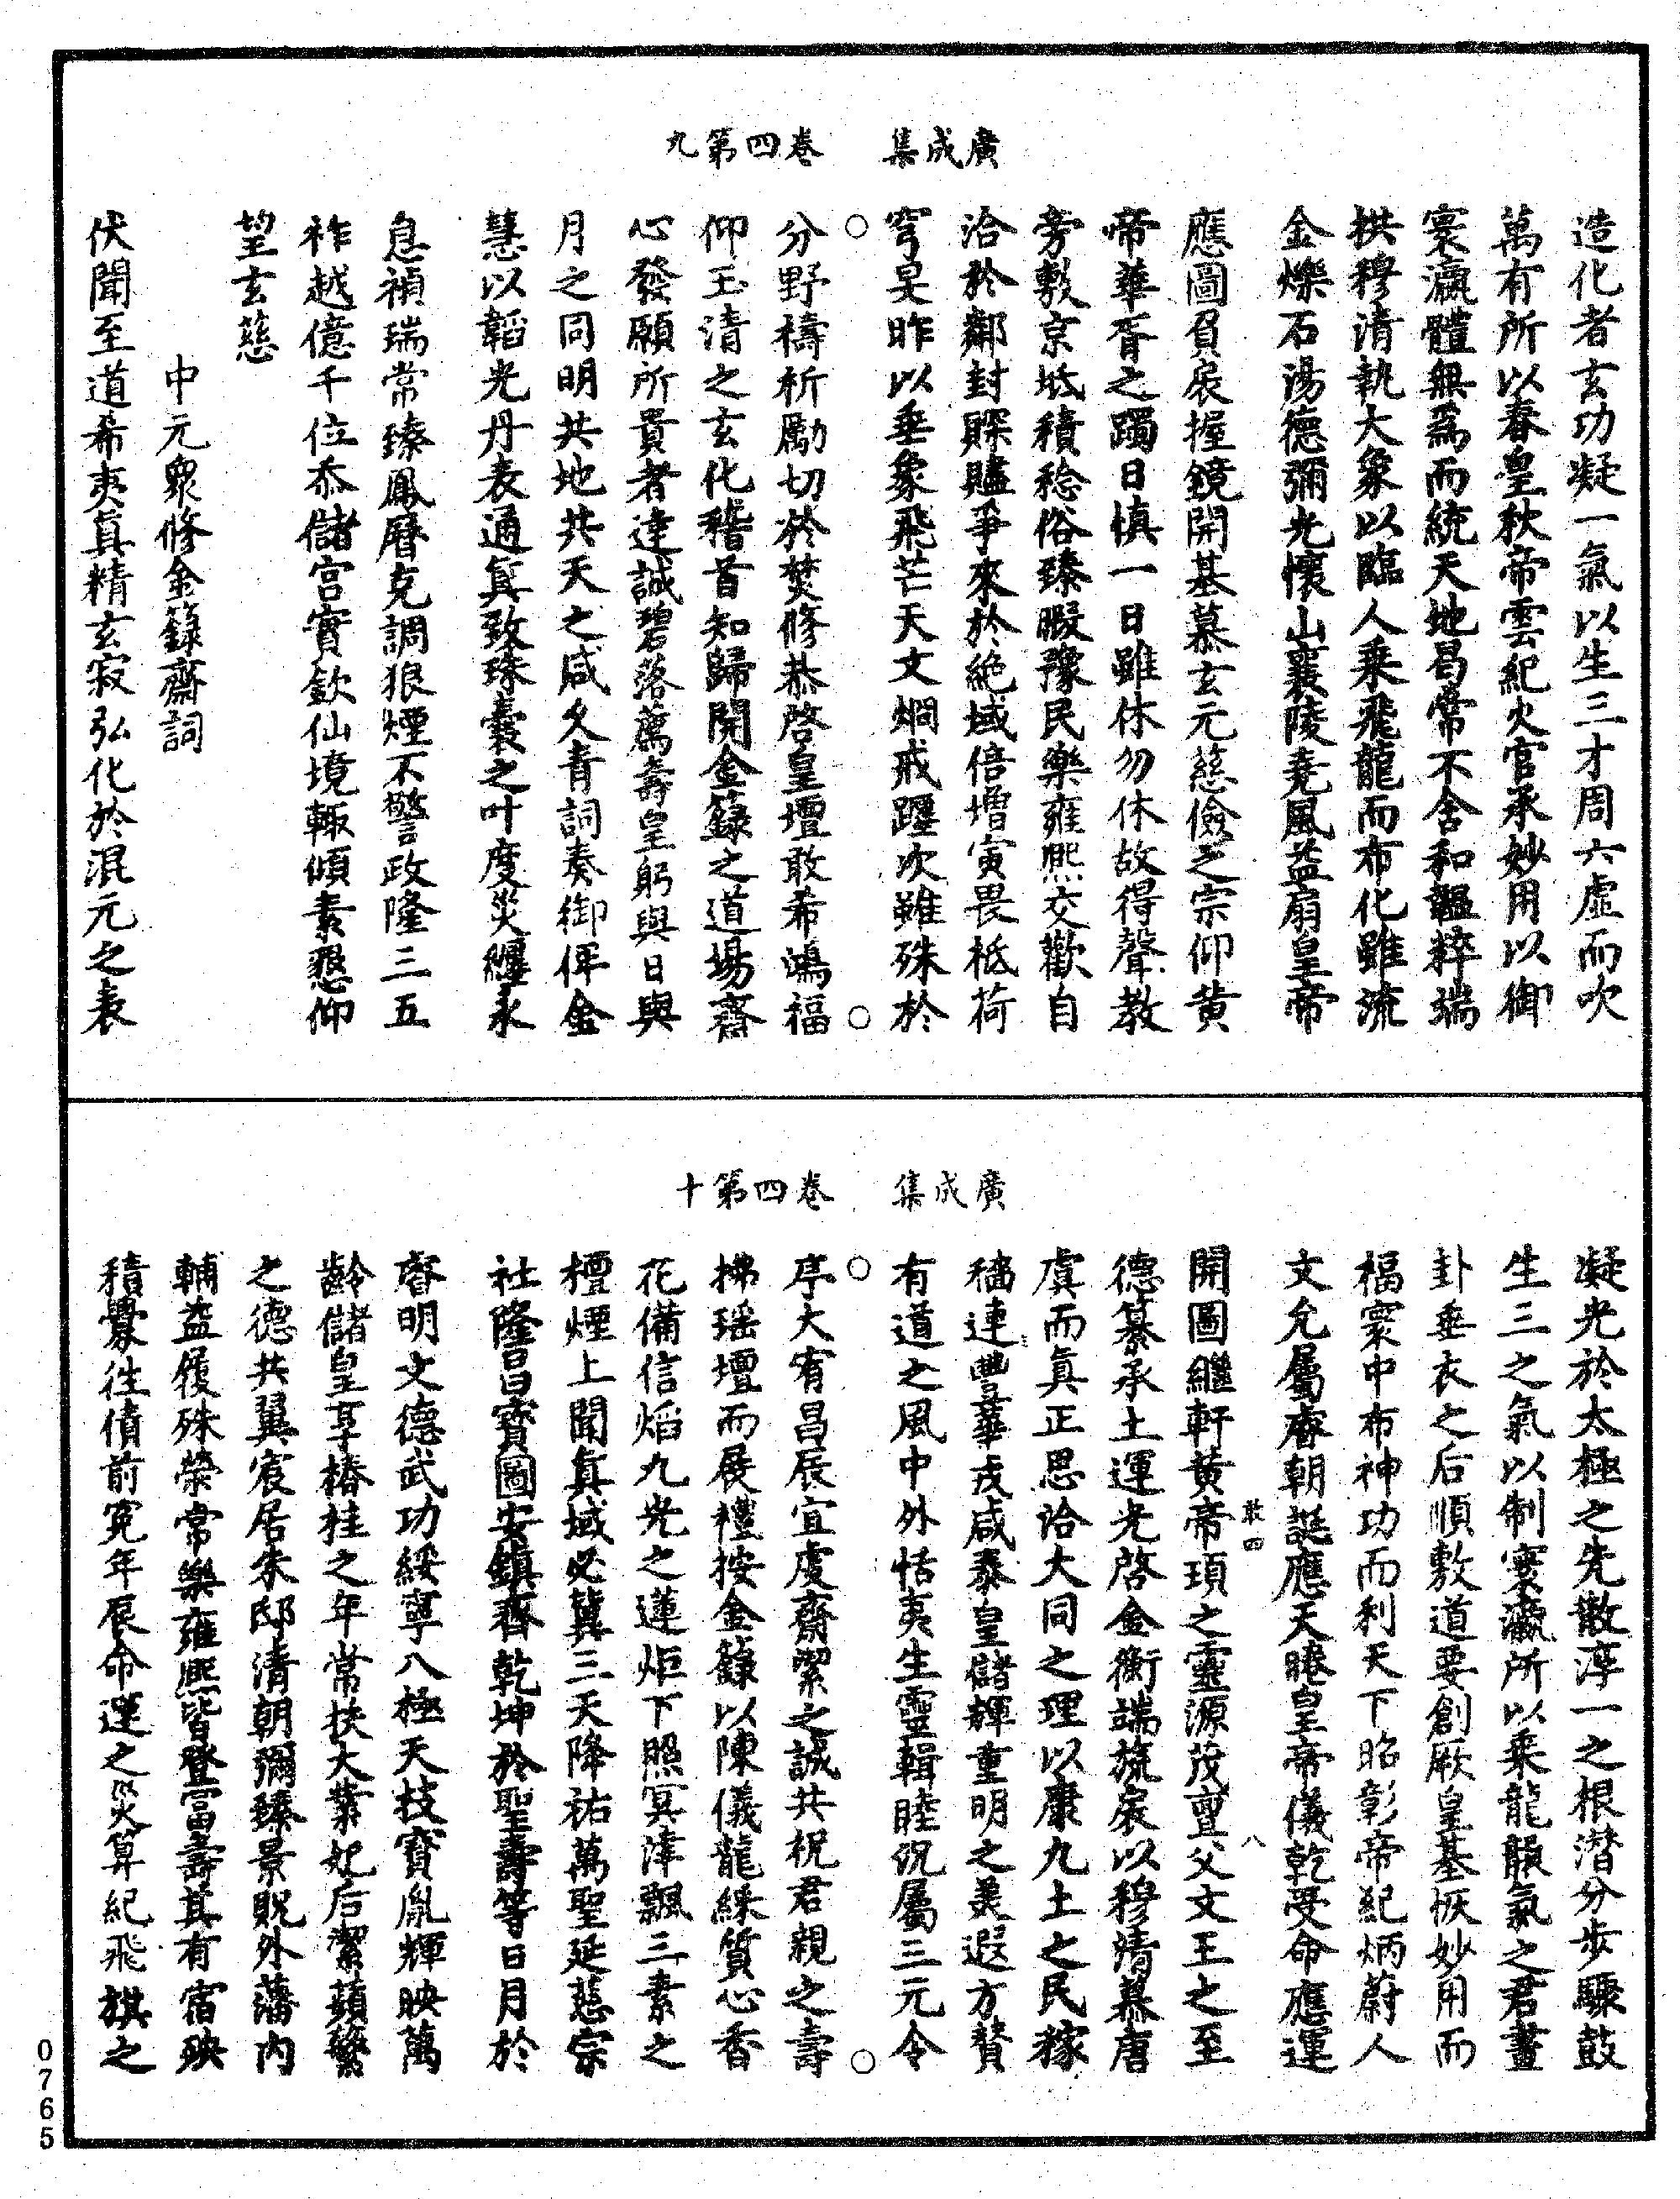 廣成集　卷四第九
造化者玄功凝一氣以生三才周六虛而吹
萬有所以春皇秋帝雲紀火官承妙用以御
寰瀛體無爲而統天地曷常不含和韞粹端
拱穆清執大象以臨人乘飛龍而布化雖流
金爍石湯德彌光懷山襄陵堯風益扇皇帝
應圖負扆握鏡開基慕玄元慈儉之宗仰黃
帝華胥之躅日愼一日雖休勿休故得聲教
旁敷京坻積稔俗臻暇豫民樂雍熙交歡自
洽於鄰封賝贐爭來於絶域倍增寅畏柢荷
穹旻昨以垂象飛芒天文烱戒躔次雖殊於
分野禱祈勵切於焚修恭啓皇壇敢希鴻福
仰玉清之玄化稽首知歸開金籙之道場齋
心發願所貴者達誠碧落薦壽皇躬與日與
月之同明共地共天之咸久青詞奏御俾金
慧以韜光丹表通真致珠囊之叶度災纏永
息禎瑞常臻鳳曆克調狼煙不警政隆三五
祚越億千位忝儲宮實欽仙境輙傾素懇仰
望玄慈
中元衆修金籙齋詞
伏聞至道希夷真精玄寂弘化於混元之表
廣成集　卷四第十
凝光於太極之先散淳一之根潛分步驟鼓
生三之氣以制寰瀛所以乘龍韻氣之君畫
卦垂衣之后順敷道要創厥皇基恢妙用而
福寰中布神功而利天下昭彰帝紀炳蔚人
文允屬睿朝誕應天睠皇帝儀乾受命應運
敢四　八
開圖繼軒黃帝頊之靈源茂亶父文王之至
德纂承土運光啓金衡端旒扆以穆清慕唐
虞而真正思洽大同之理以康九土之民稼
穡連豐華戎咸泰皇儲輝重明之美遐方贊
有道之風中外恬夷生靈輯睦況屬三元令
序大宥昌辰宜虔齋潔之誠共祝君親之壽
拂瑶壇而展禮按金籙以陳儀龍綵質心香
花備信焰九光之蓮炬下照冥津飄三素之
檀煙上聞真域必冀三天降祐萬聖延慈宗
社隆昌寶圖安鎮齊乾坤於聖壽等日月於
睿明文德武功綏寧八極天枝寶胤輝映萬
齡儲皇享椿桂之年常扶大業妃后潔蘋蘩
之德共翼宸居朱邸清朝彌臻景貺外藩内
輔益履殊榮常樂雍熙皆登富壽其有宿殃
積釁往債前冤年辰命運之災算紀飛旗之
0765